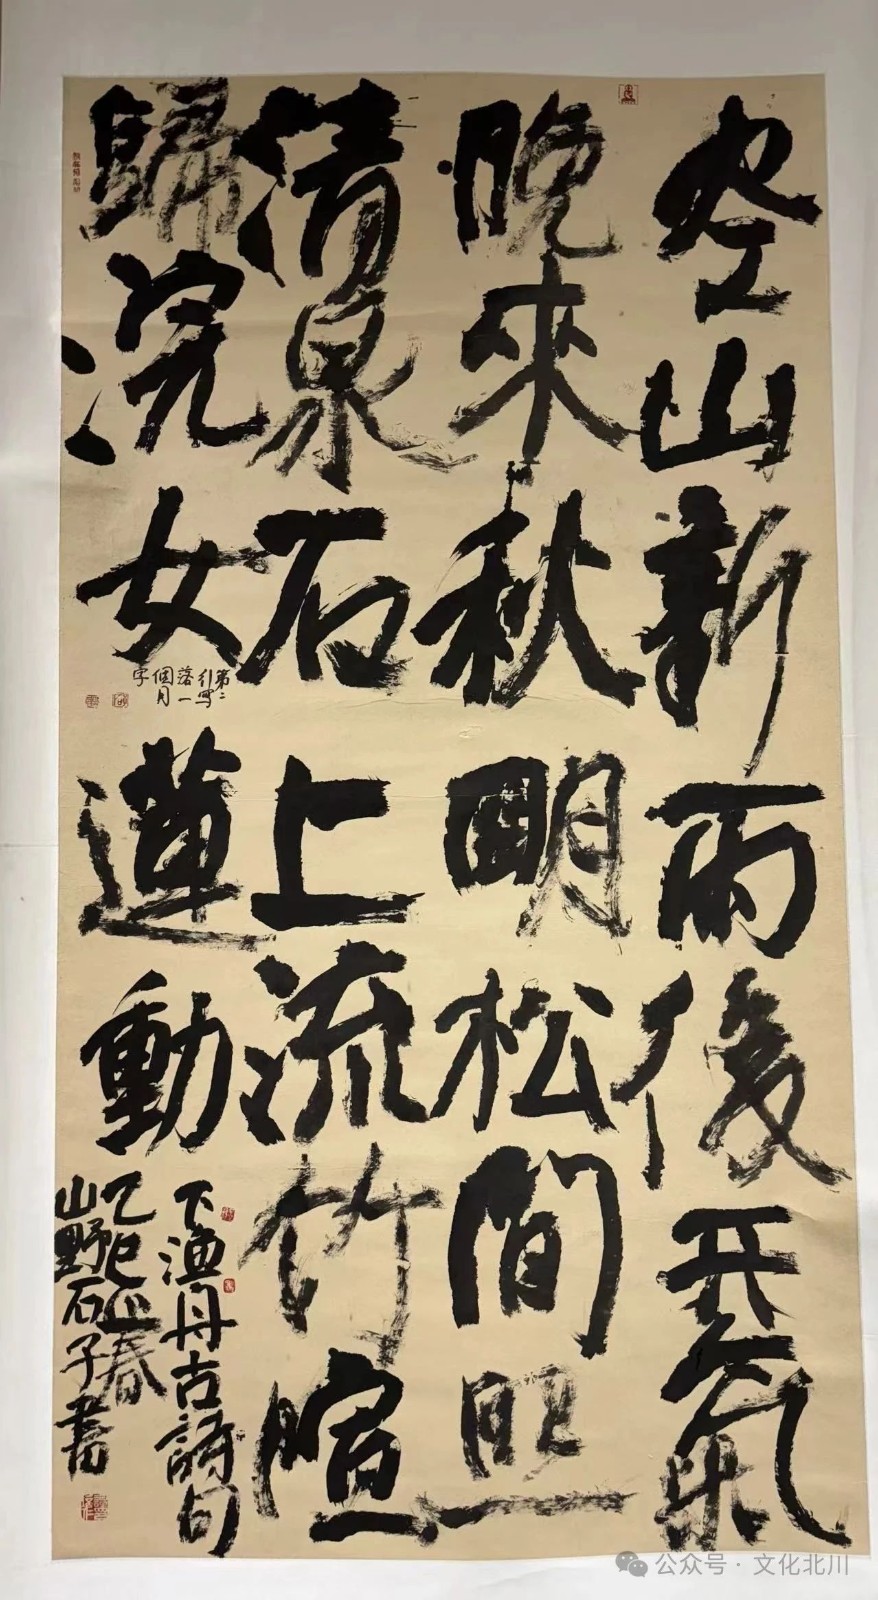 空山新雨後天氣
晚來秋明松間照
清泉石上流竹喧
歸浣女蓮動
下渔舟古詩句
乙巳正春
山野石子書
第二
行寫
落一
個月
字
公众号 · 文化北川